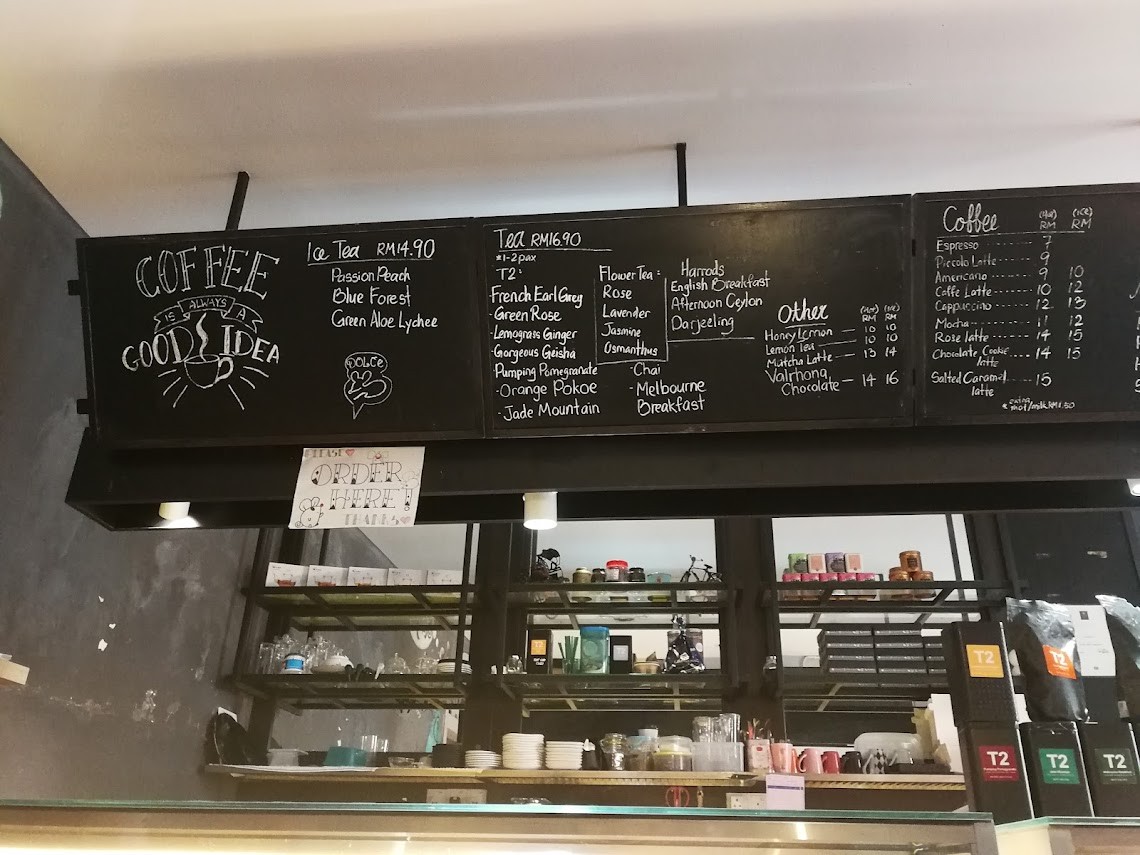 COFFEE
IS ALWAYS A
GOOD IDEA
Ice Tea RM14.90
Passion Peach
Blue Forest
Green Aloe Lychee
DOLCE
Tea RM16.90
*1-2 pax
T2:
French Earl Grey
·Green Rose
·Lemongrass Ginger
·Gorgeous Geisha
·Pumping Pomegranate
·Orange Pokoe
·Jade Mountain
Flower Tea:
Rose
Lavender
Jasmine
Osmanthus
·Chai
·Melbourne
Breakfast
Harrods
English Breakfast
Afternoon Ceylon
Darjeeling
Other (Hot) RM (Ice) RM
Honey Lemon — 10 10
Lemon Tea — 10 10
Matcha Latte — 13 14
Valrhona
Chocolate — 14 16
Coffee (Hot) RM (ICE) RM
Espresso ------- 7
Piccolo Latte -- 9
Americano ---- 9 10
Caffe Latte ---- 10 12
Cappuccino ---- 12 13
Mocha ------- 11 12
Rose latte ----- 14 15
Chocolate Cookie ---- 14 15
latte
Salted Caramel ------ 15
latte
* extra
shot/milk RM1.50
PLEASE
ORDER
HERE!
THANKS
T2
T2
T2
T2
T2